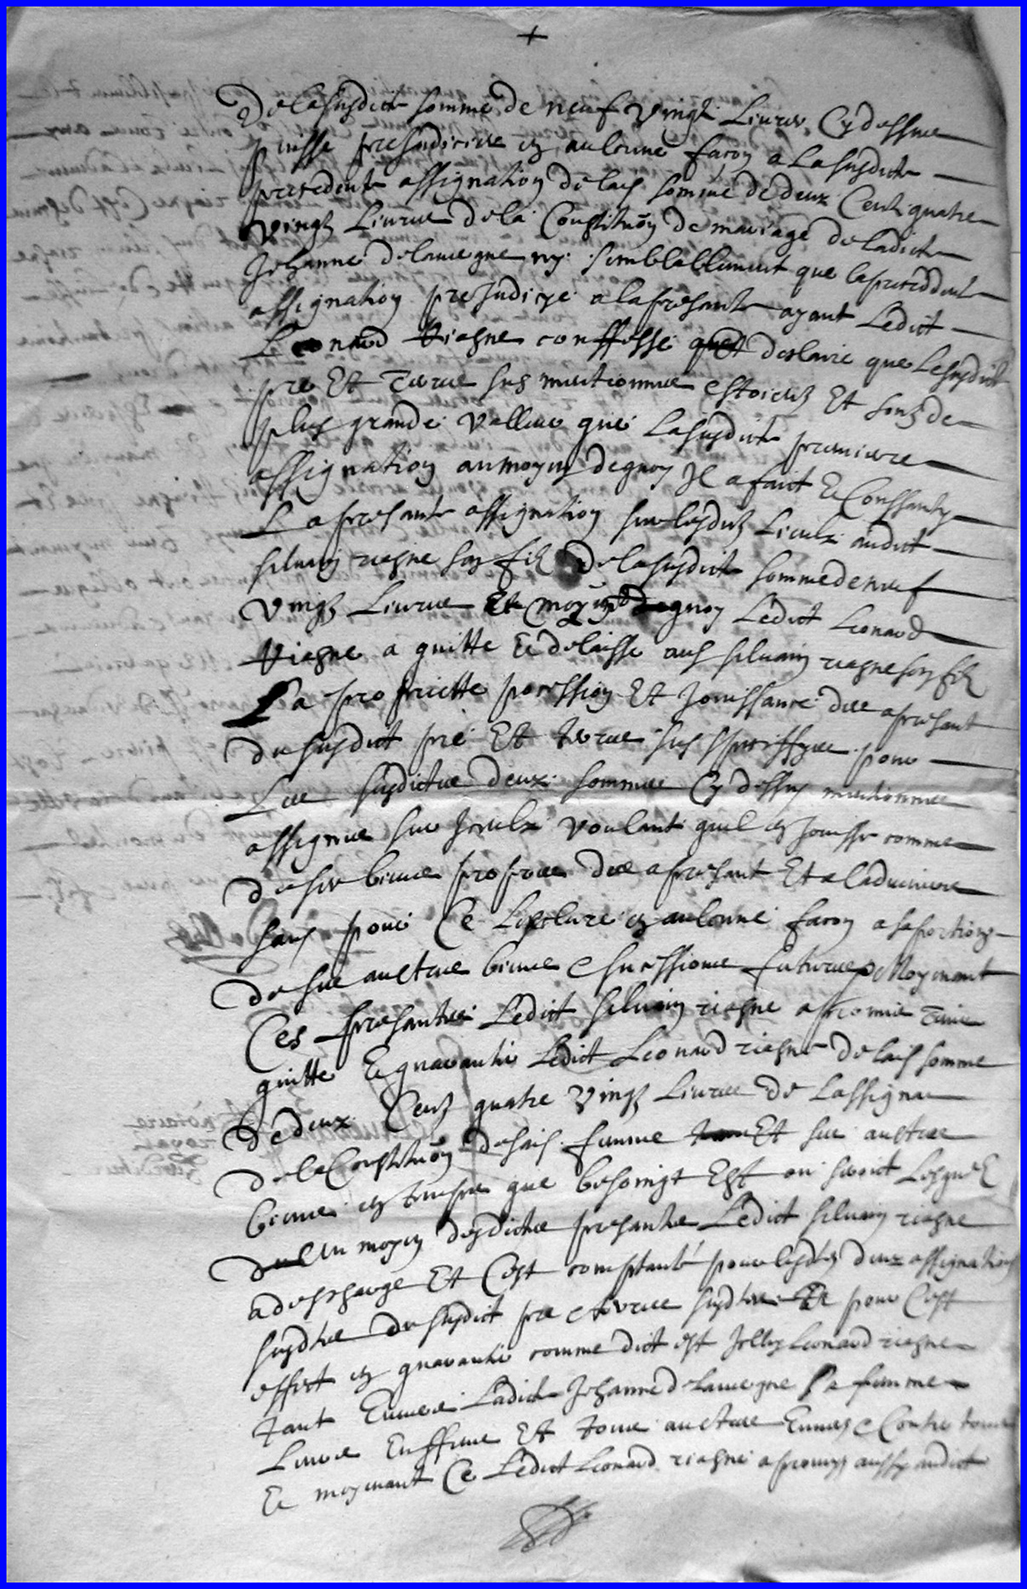 +
De lasusdicte somme de neuf vingt Livres Cy dessus
puisse presiudicier en aulcune facon a la susdicte
precedente assignation de lad somme de deux Centz quatre
vingtz Livres de la Constituon de mariage de ladicte
Jehanne delauergne ny semblablement que la preceddente
assignation preiudicye a la presante ayant Ledict
Leonard riagne conffesse et desclaire que Lesusdict
pre Et Terre sus mentionnes estoient Et sont de
plus grande valleur que La susdicte premiere
assignation au moyen de quoy Il a faict & Conssanty
La presante assignation sur lesdictz Lieulx audict
siluain riagne son filz de la susdicte somme de neuf
vingtz Liures Et moyent de quoy Ledict Leonard
riagne a quitte & delaisse aud siluain riagne son filz
La proprietté possession Et Jouissance des a presant
du susdict pré Et terre sus speciffyes pour
Les susdictes deux sommes Cy dessus mentionnes
assignes sur Iceulx voulant quil en Jouisse comme
de ses biens propres des a presant Et a laduenir
sans pour Ce L'exclure en aulcune facon a sa portion
de ses aultres biens & sucssions futures Moyenant
Ces presantes Ledict siluain riagne a promis Tenir
quitte & guarantir Ledict Leonard riagne de lad somme
de deux Centz quatre vingtz Liures de Lassignaon
de la Constituon de sad femme Et ses aultres
biens en tant que besoingt Est ou seroit Lesquelz
au moyen desdictes presantes Ledict siluain riagne
a descharge Et Cest comptanté pour lesdtes deux assignations
susdtes du susdict pre & terre susdtes & pour Cest
effect en guarantir comme dict est Icelluy Leonard riagne
tant Enuers Ladicte Jehanne delauergne sa femme
Leurs Enffens Et tous aultres Enuers & Contre tous
& moyenant Ce Ledict Leonard riagne a promis aussy audict